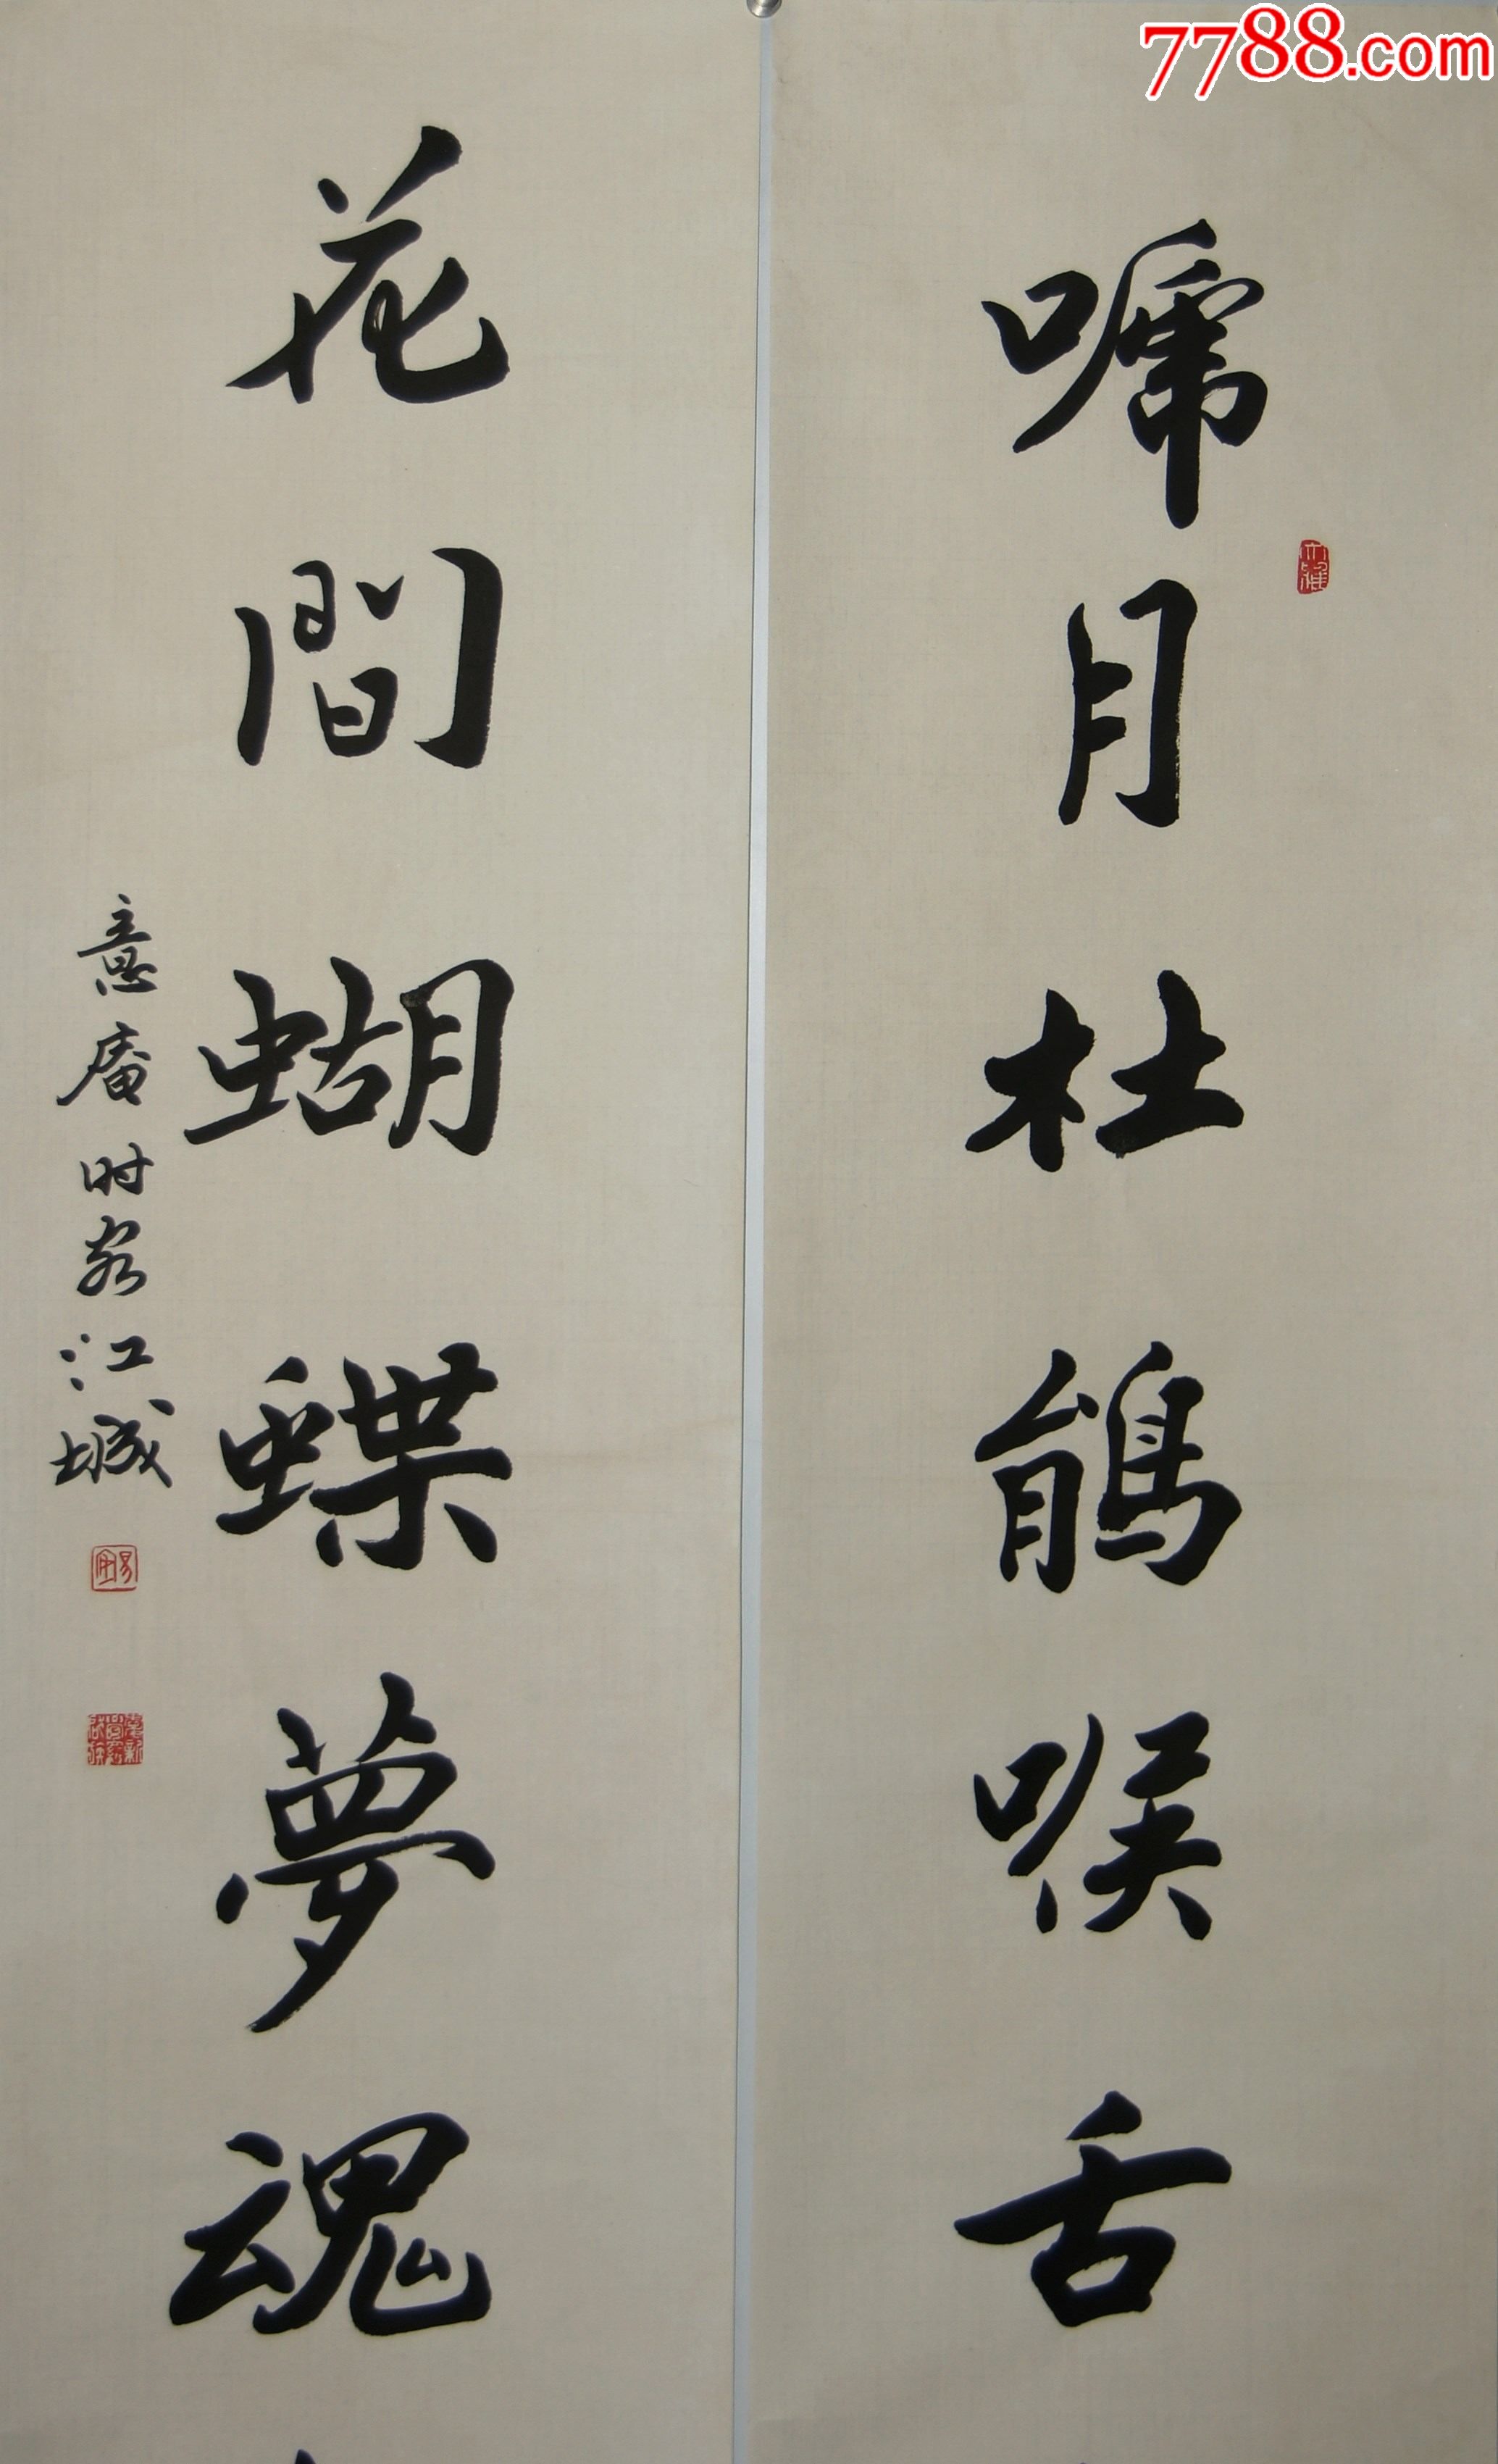 7788.com
嗁月杜鵑喉舌
花間蝴蝶夢魂
意庵时客江城